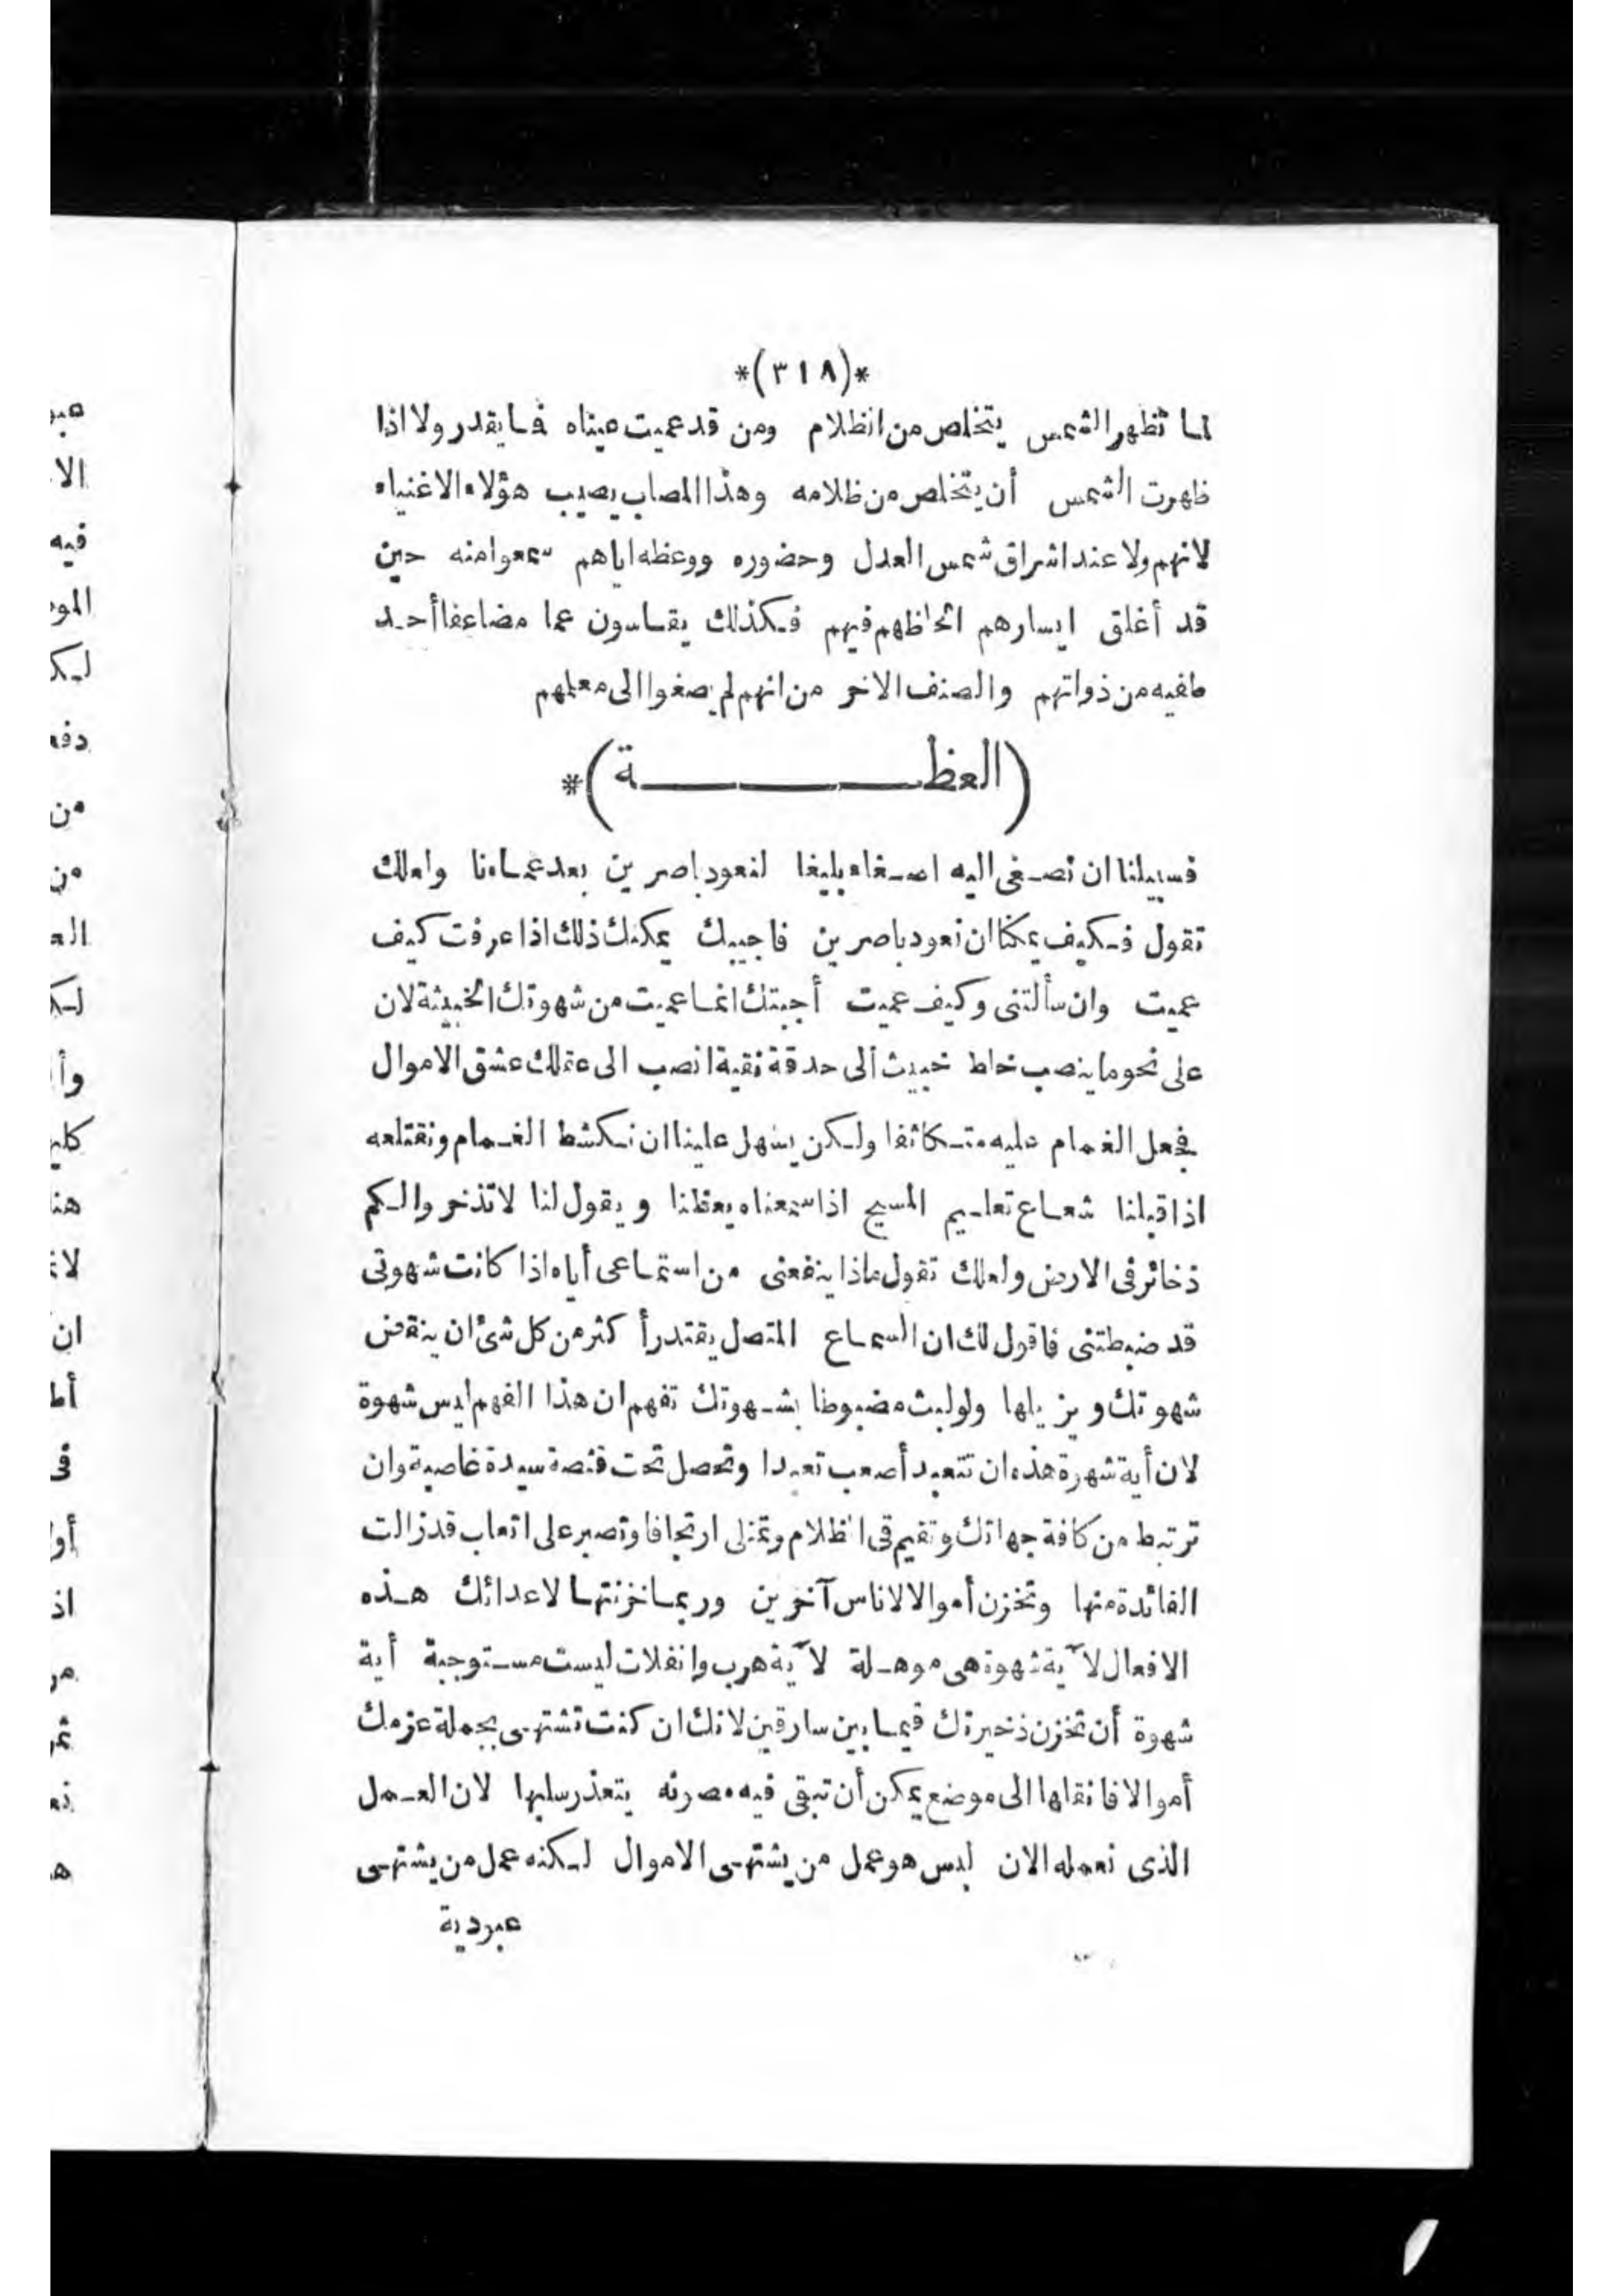 *(٣١٨)*
لما تظهر الشمس يتخلص من الظلام ومن قد عميت عيناه فما يقدر ولا اذا
ظهرت الشمس أن يتخلص من ظلامه وهذا المصاب يصيب هؤلاء الاغنياء
لانهم ولا عند اشراق شمس العدل وحضوره ووعظه اياهم سمعوا منه حين
قد أغلق ايسارهم الحاظهم فيهم فكذلك يقاسون عما مضاعفا أحد
مافيه من ذواتهم والصنف الاخر من انهم لم يصغوا الى معلمهم
(العظة)*
فسبيلنا ان نصغى اليه اصغاء بليغا لنعود باصرين بعد عماءنا ولعلك
تقول فكيف يمكنا ان نعود باصرين فاجيبك يمكنك ذلك اذا عرفت كيف
عميت وان سألتنى وكيف عميت أجبتك انما عميت من شهوتك الخبيثة لان
على نحو ما ينصب خلط خبيث الى حدقة نقية انصب الى عقلك عشق الاموال
فجعل الغمام عليه متكاثفا ولكن يسهل علينا ان نكشط الغمام ونقتلعه
اذا قبلنا شعاع تعاليم المسيح اذا سمعناه يعظنا ويقول لنا لا تذخروا لكم
ذخائر فى الارض ولعلك تقول ماذا ينفعنى من استماعى أياه اذا كانت شهوتى
قد ضبطتنى فاقول لك ان السماع المتصل يقتدر أكثر من كل شئ ان ينقض
شهوتك ويزيلها ولو لبث مضبوطا بشهوتك تفهم ان هذا الفهم ليس شهوة
لان أية شهرة هذه ان تتعبد أصعب تعبدا وتحصل تحت قنصة سيدة غاصبة وان
ترتبط من كافة جهاتك وتقيم فى الظلام وتمتلى ارتجافا وتصبر على اتعاب قد زالت
الفائدة منها وتخزن أموالا لاناس آخرين وربما خزنتها لاعدائك هذه
الافعال لآية شهوة هى موهلة لآية هرب وانفلات ليست مستوجبة أية
شهوة أن تخزن ذخيرتك فيما بين سارقين لانك ان كنت تشتهى بجملة عزمك
أموالا فانقلها الى موضع يمكن أن تبقى فيه مصونه يتعذر سلبها لان العمل
الذى نعمله الان ليس هو عمل من يشتهى الاموال لكنه عمل من يشتهى
عبودية